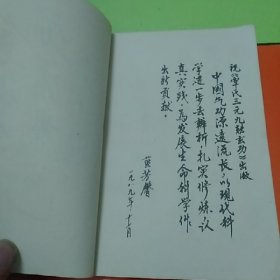 祝《覃氏三元九转玄功》出版
中国气功源远流长，以现代科
学进一步去辨析，扎实修炼，认
真实践，为发展生命科学作
出新贡献。
黄芳馨
一九八九年十二月